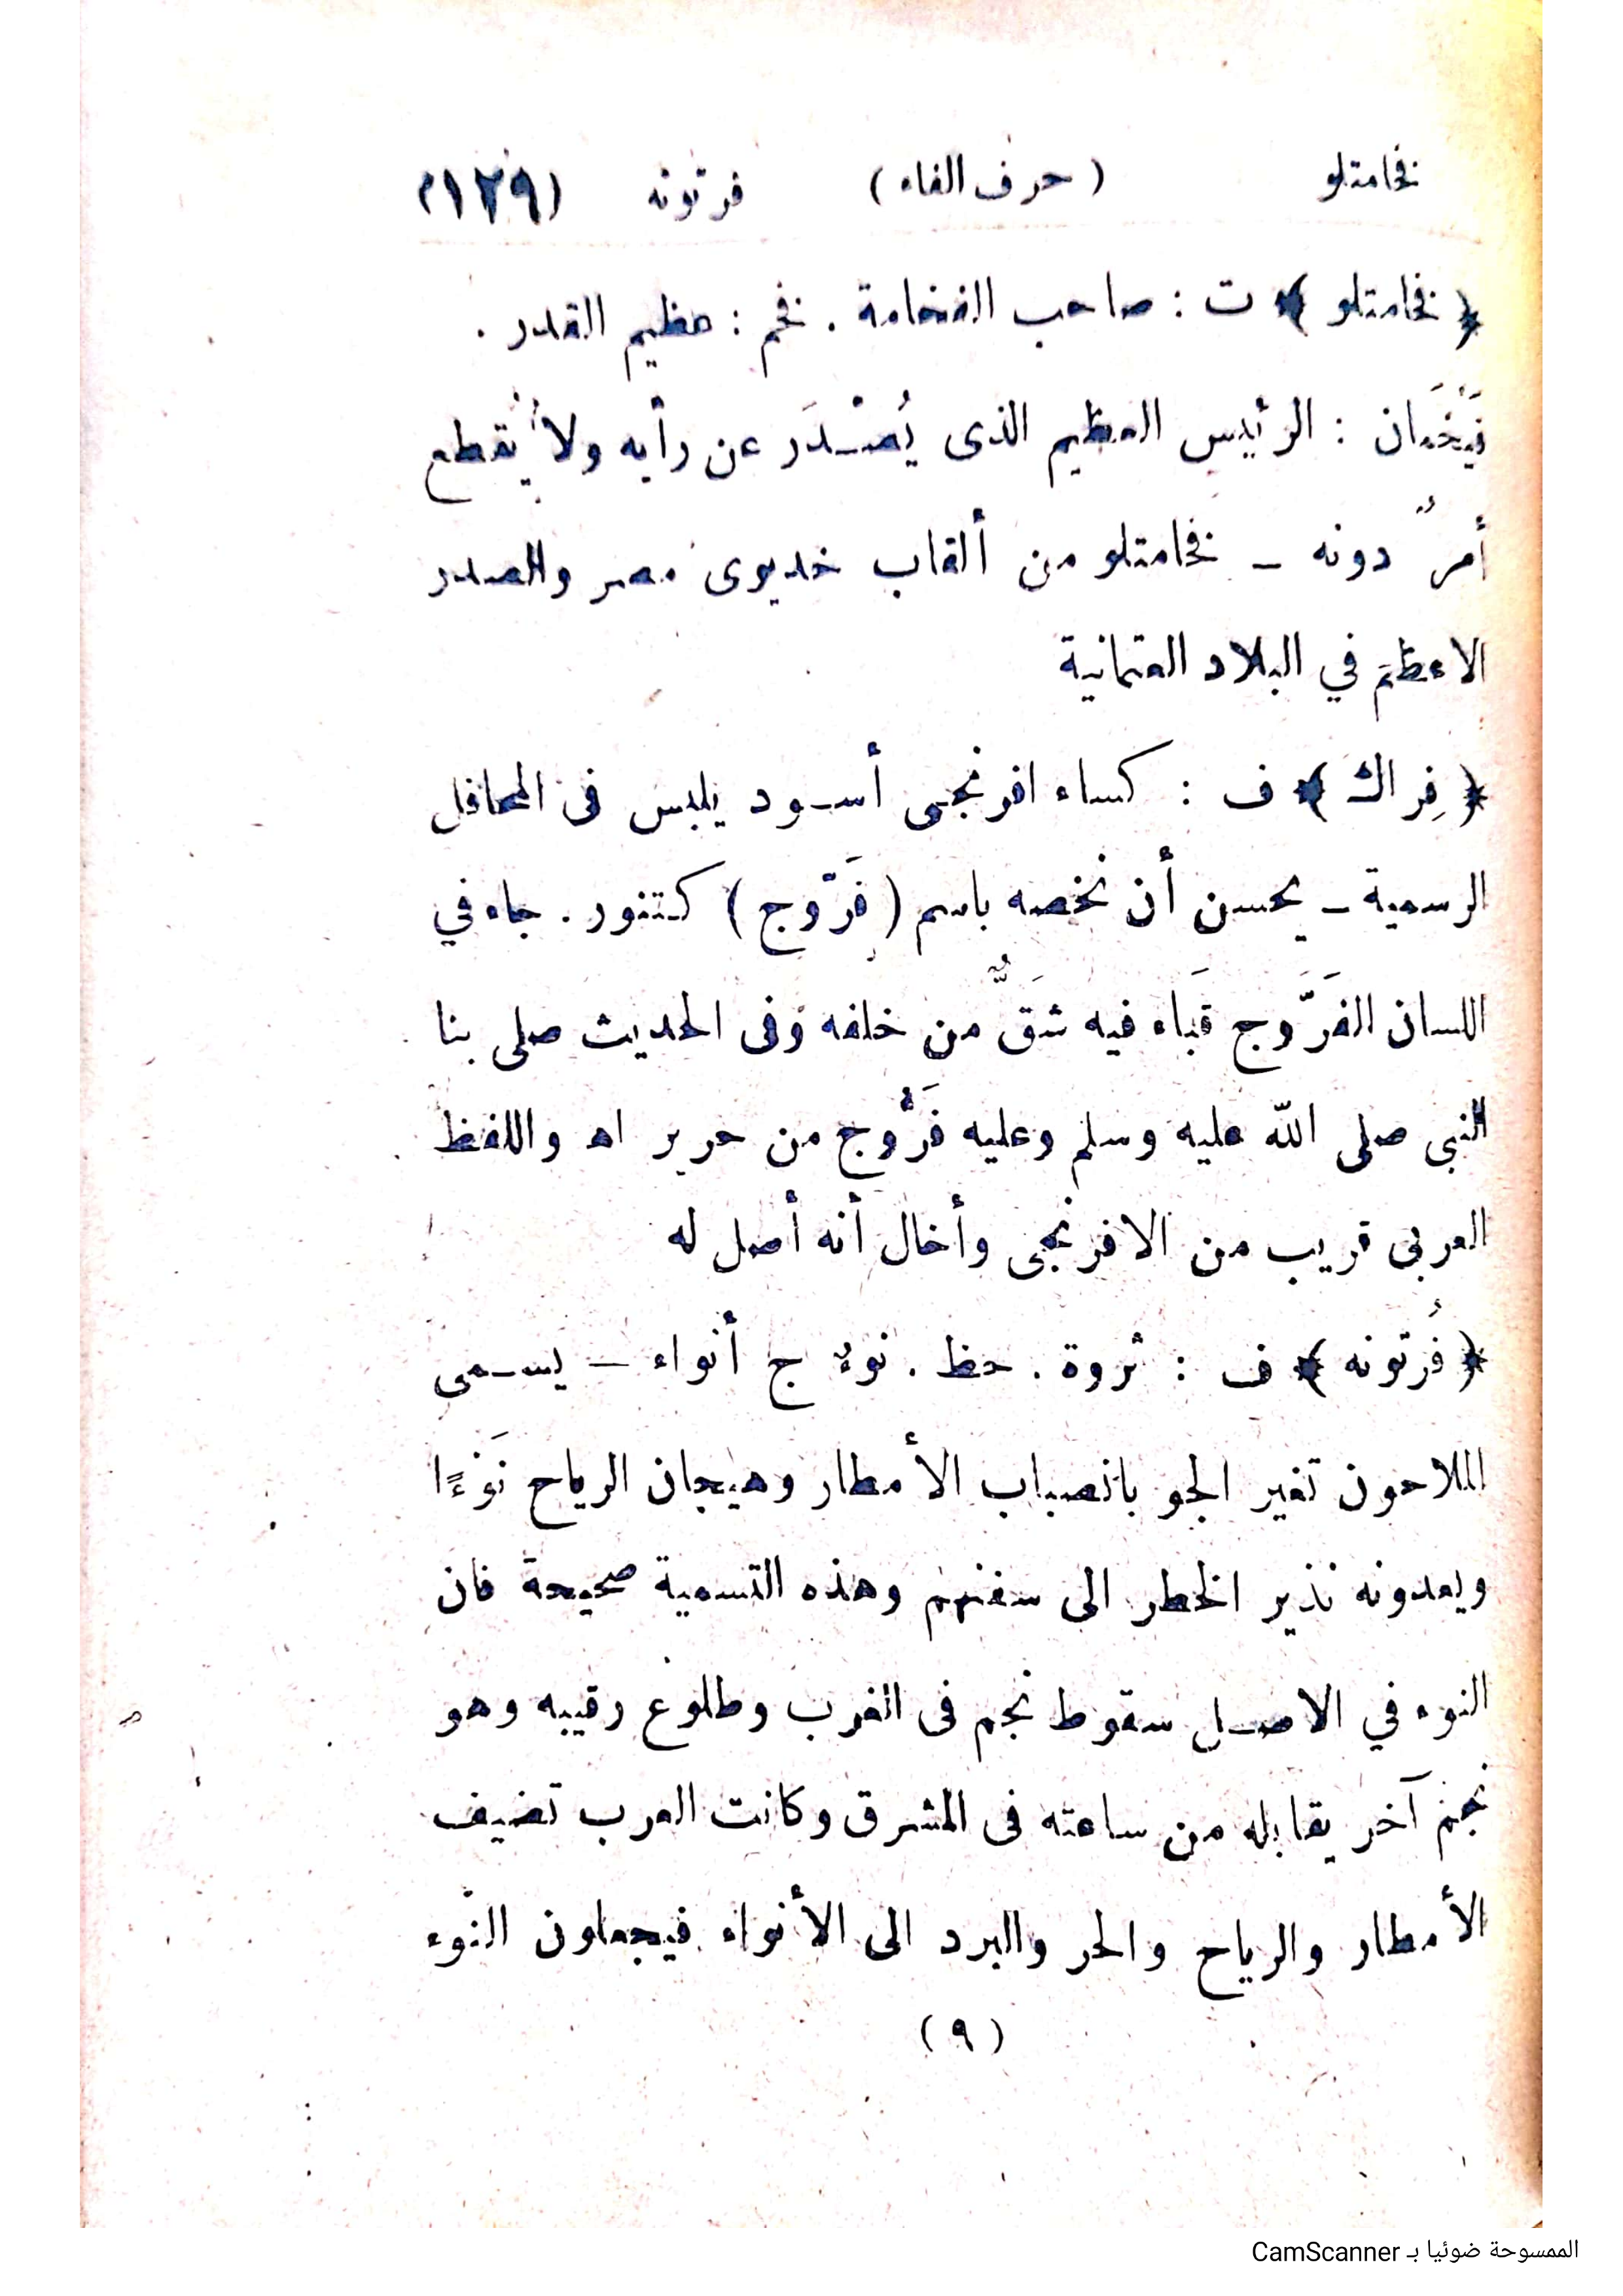 فخامتلو (حرف الفاء) فرتونه (١٢٩)
﴿فخامتلو﴾ ت : صاحب الفخامة . فخم : عظيم القدر .
فَيْخَمَان : الرئيس العظيم الذى يُصْدَر عن رأيه ولا يُقطع
أمرٌ دونه ــ فخامتلو من ألقاب خديوى مصر والصدر
الاعظم في البلاد العثمانية
﴿فِراك﴾ ف : كساء افرنجى أسود يلبس فى المحافل
الرسمية ــ يحسن أن نخصه باسم (فَرّوج) كتنور . جاء في
اللسان الفَرَّوج قَباء فيه شَقٌّ من خلفه وفى الحديث صلى بنا
النبى صلى الله عليه وسلم وعليه فَرُّوج من حرير اه واللفظ
العربى قريب من الافرنجى وأخال أنه أصل له
﴿فُرتونه﴾ ف : ثروة . حظ . نوءٌ ج أنواء ــ يسمى
الملاحون تغير الجو بانصباب الأمطار وهيجان الرياح نَوْءًا
ويعدونه نذير الخطر الى سفنهم وهذه التسمية صحيحة فان
النوء في الاصل سقوط نجم فى الغرب وطلوع رقيبه وهو
نجم آخر يقابله من ساعته فى المشرق وكانت العرب تضيف
الأمطار والرياح والحر والبرد الى الأنواء فيجعلون النّوء
(٩)
الممسوحة ضوئيا بـ CamScanner